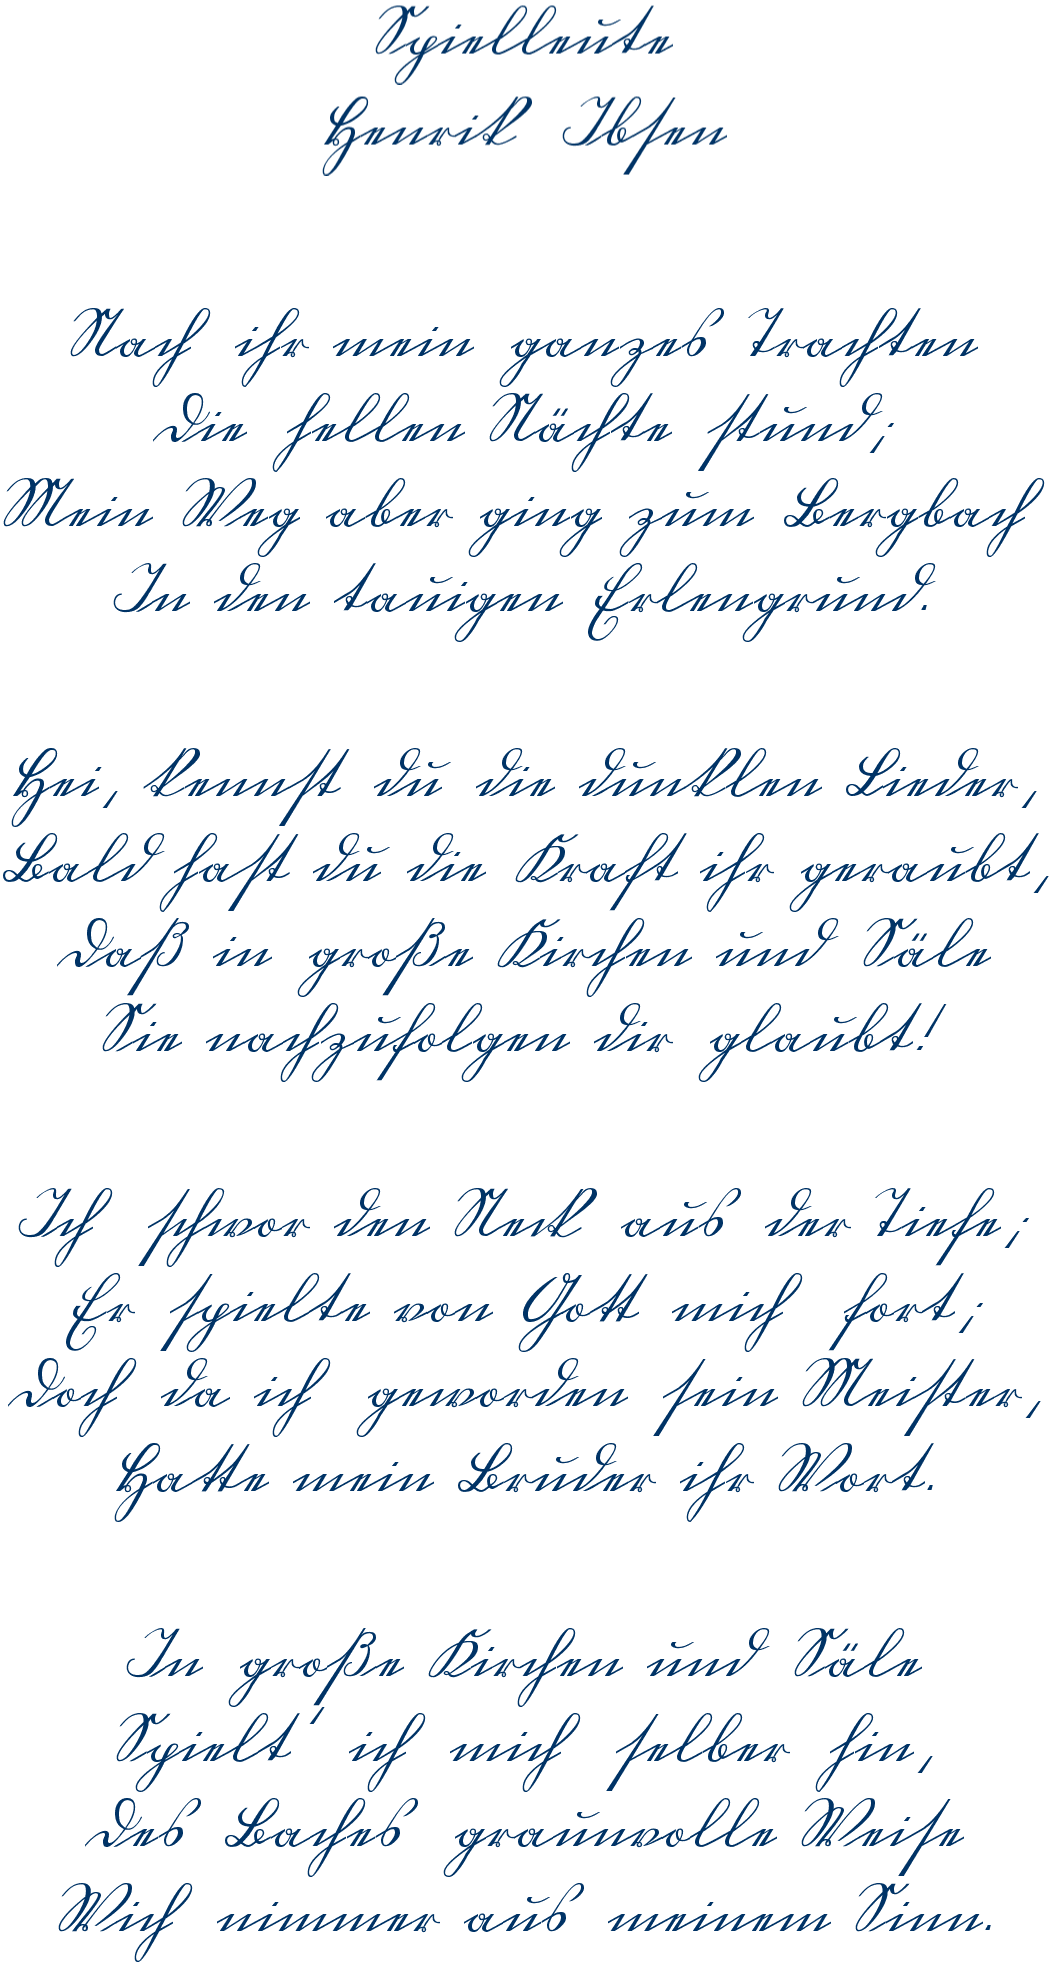 Spielleute
Henrik Ibsen
Nach ihr mein ganzes Trachten
Die hellen Nächte stund;
Mein Weg aber ging zum Bergbach
In den tauigen Erlengrund.
Hei, kennst du die dunklen Lieder,
Bald hast du die Kraft ihr geraubt,
Daß in große Kirchen und Säle
Sie nachzufolgen dir glaubt!
Ich schwor den Neck aus der Tiefe;
Er spielte von Gott mich fort;
Doch da ich geworden sein Meister,
Hatte mein Bruder ihr Wort.
In große Kirchen und Säle
Spielt' ich mich selber hin,
Des Baches graunvolle Weise
Wich nimmer aus meinem Sinn.